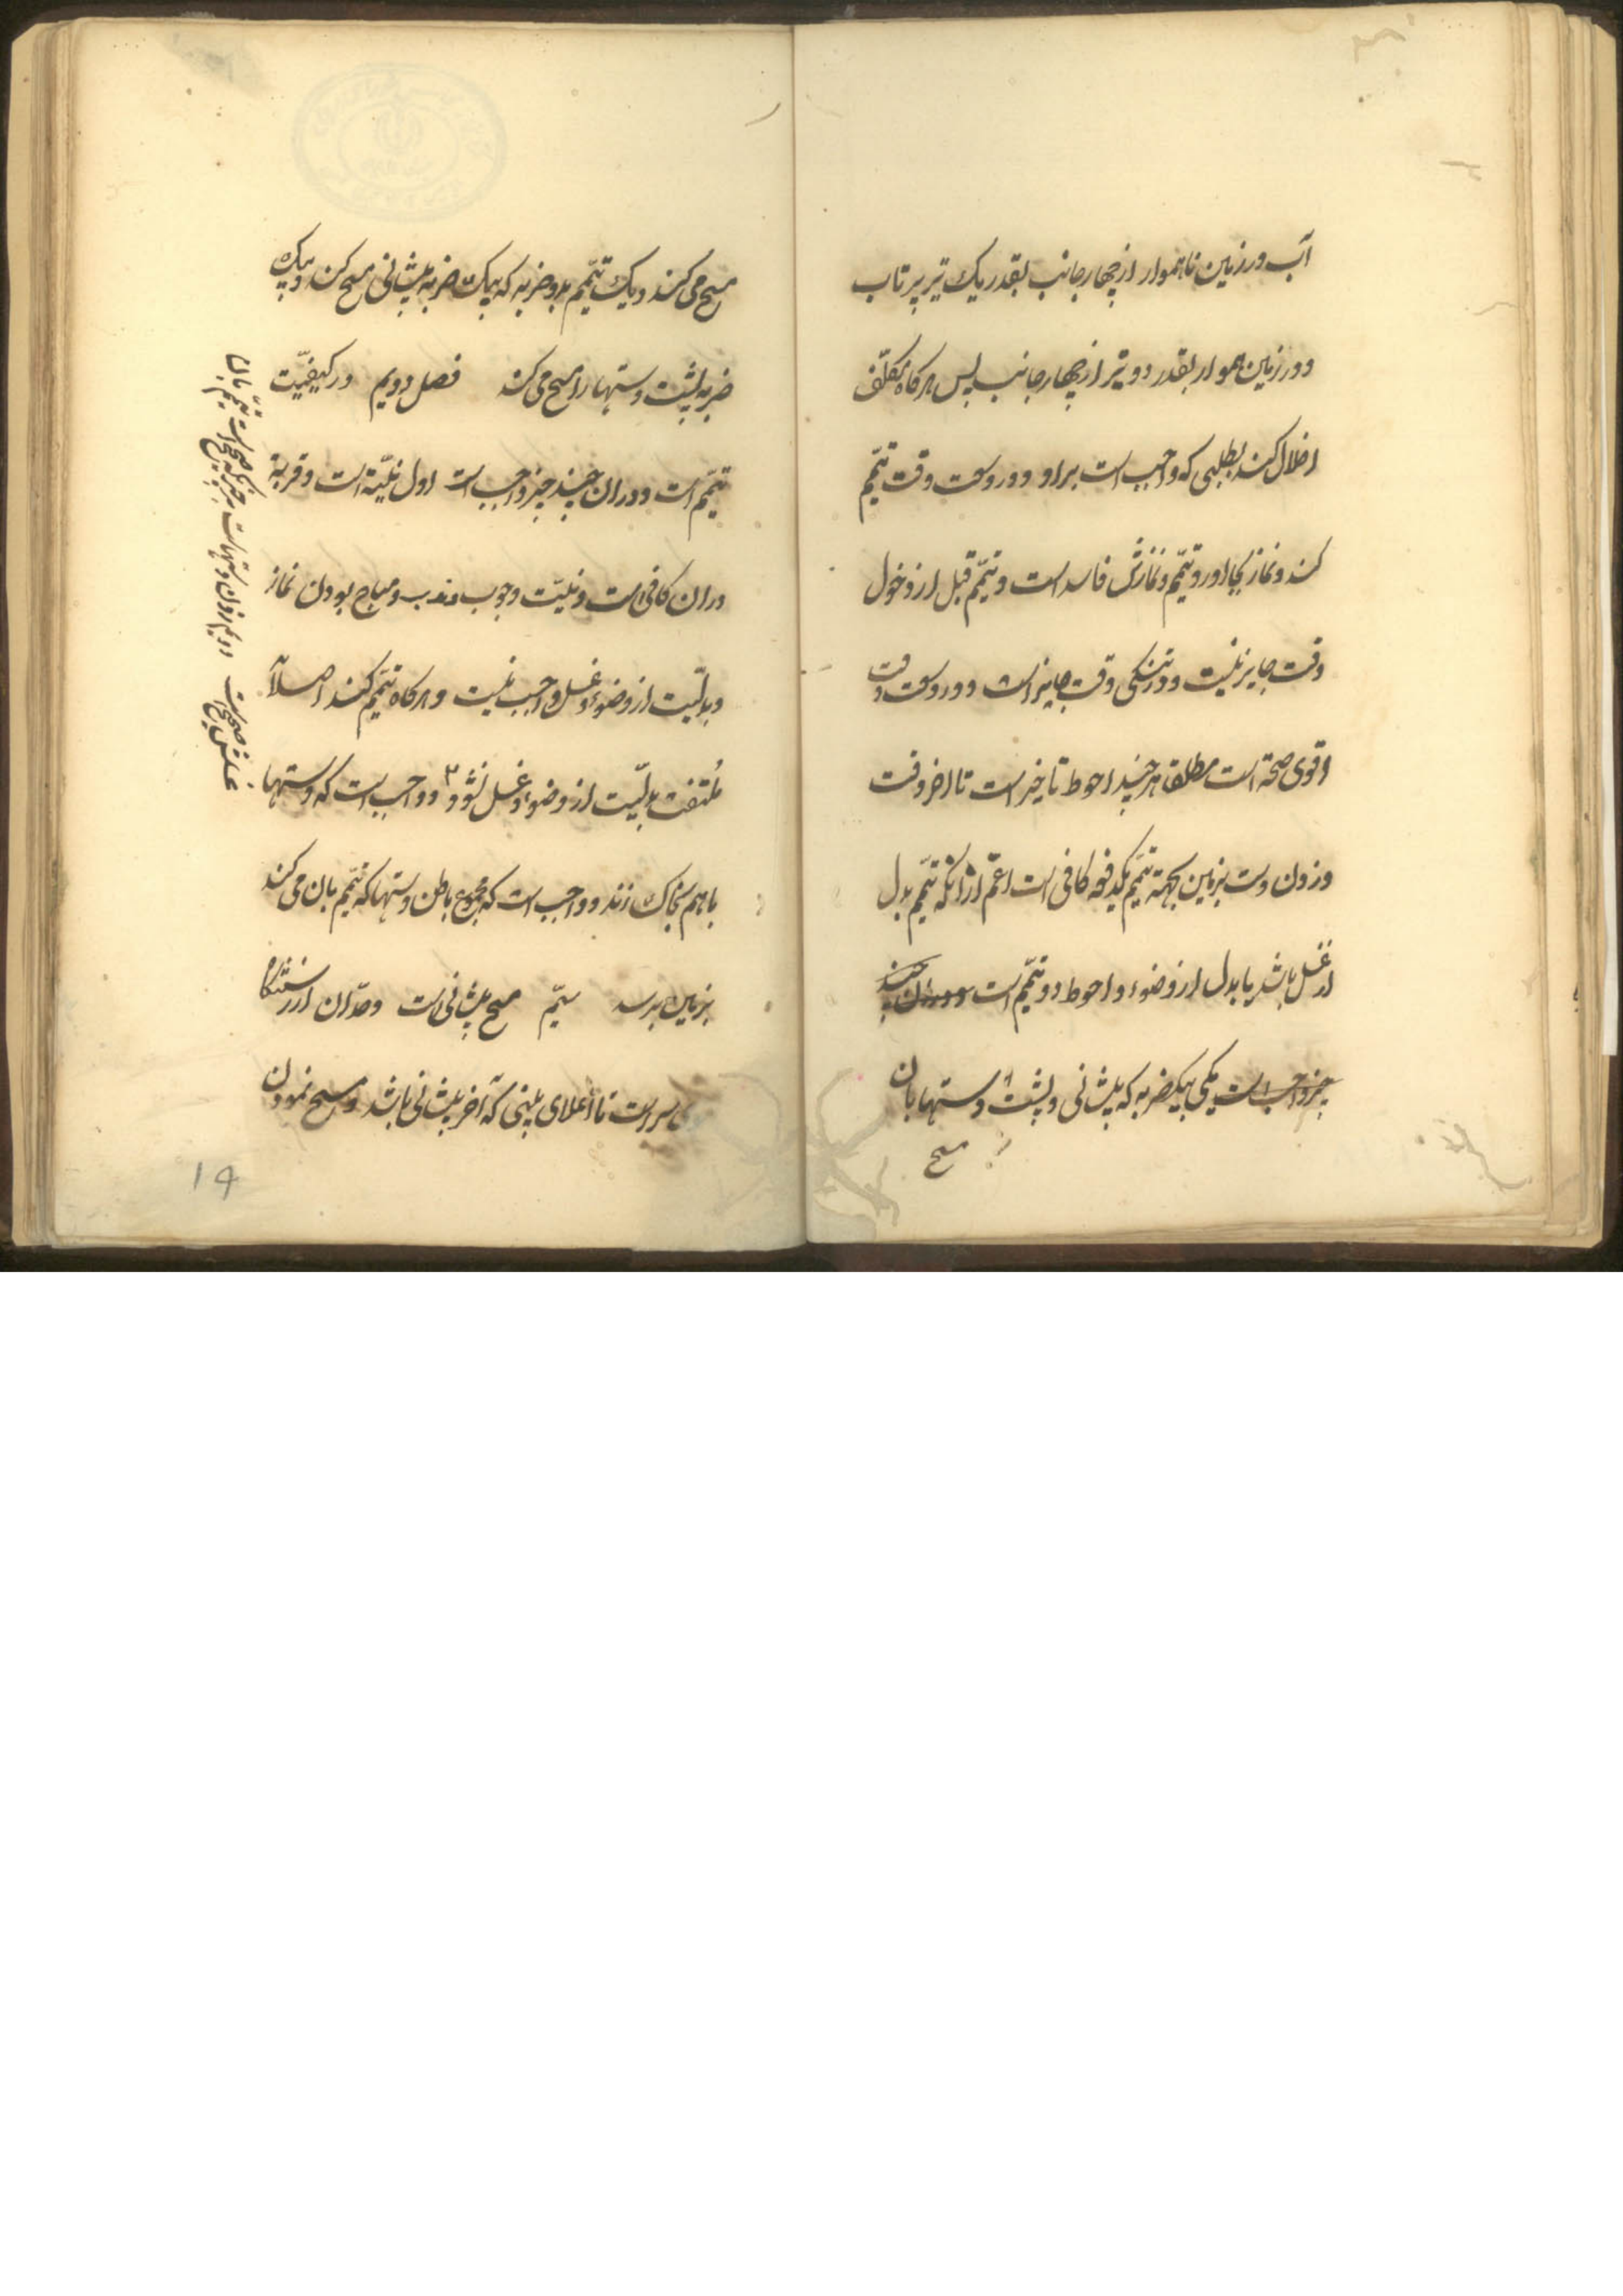 آب و در زمین ناهموار از چهار جانب بقدر یک تیر پرتاب
و در زمین هموار بقدر دو تیر از چهار جانب پس هرکاه مکلّف
اخلال کند بطلبی که واجب است بر او و در وسعت وقت تیمّم
کند و نماز بجا اورد تیمّم و نمازش فاسد است و تیمّم قبل از دخول
وقت جایز نیست و در تنکی وقت جایز است و در وسعت وقت
اقوی صحة است مطلقا هر چند احوط تاخیر است تا اخر وقت
و زدن دست بزمین بجهة تیمّم یکدفعه کافی است اعمّ از انکه تیمّم بدل
از غسل باشد یا بدل از وضوء و احوط دو تیمّم است و در ان چند
چیز واجب است یکی بیکضربه که پیشانی و پشت دستها بان
مسح
مسح می کند و یک تیمّم بدو ضربه که بیک ضربه پیشانی مسح کند و بیک
ضربه پشت دستها را مسح می کند فصل دویم در کیفیّت
تیمّم است و در ان چند چیز واجب است اول نیّة است و قربة
در ان کافی است و نیّت وجوب و ندب و مباح بودن نماز
و بدلیّت از وضوء و غسل واجب نیست و هرکاه تیمّم کند اصلاً
مُلتفت بدلیّت از وضوء و غسل نشود و واجب است که دستها
باهم بخاک زند و واجب است که مجموع باطن دستها که تیمّم بان می کند
بزمین برسد سیّم مسح پیشانی است و حدّ ان از رستنکاه
سر است تا اعلای بینی که آخر پیشانی باشد و مسح نمودن
دویم زدن دستهاست بر چیزیکه صحیح است تیمّم بان
۱۴